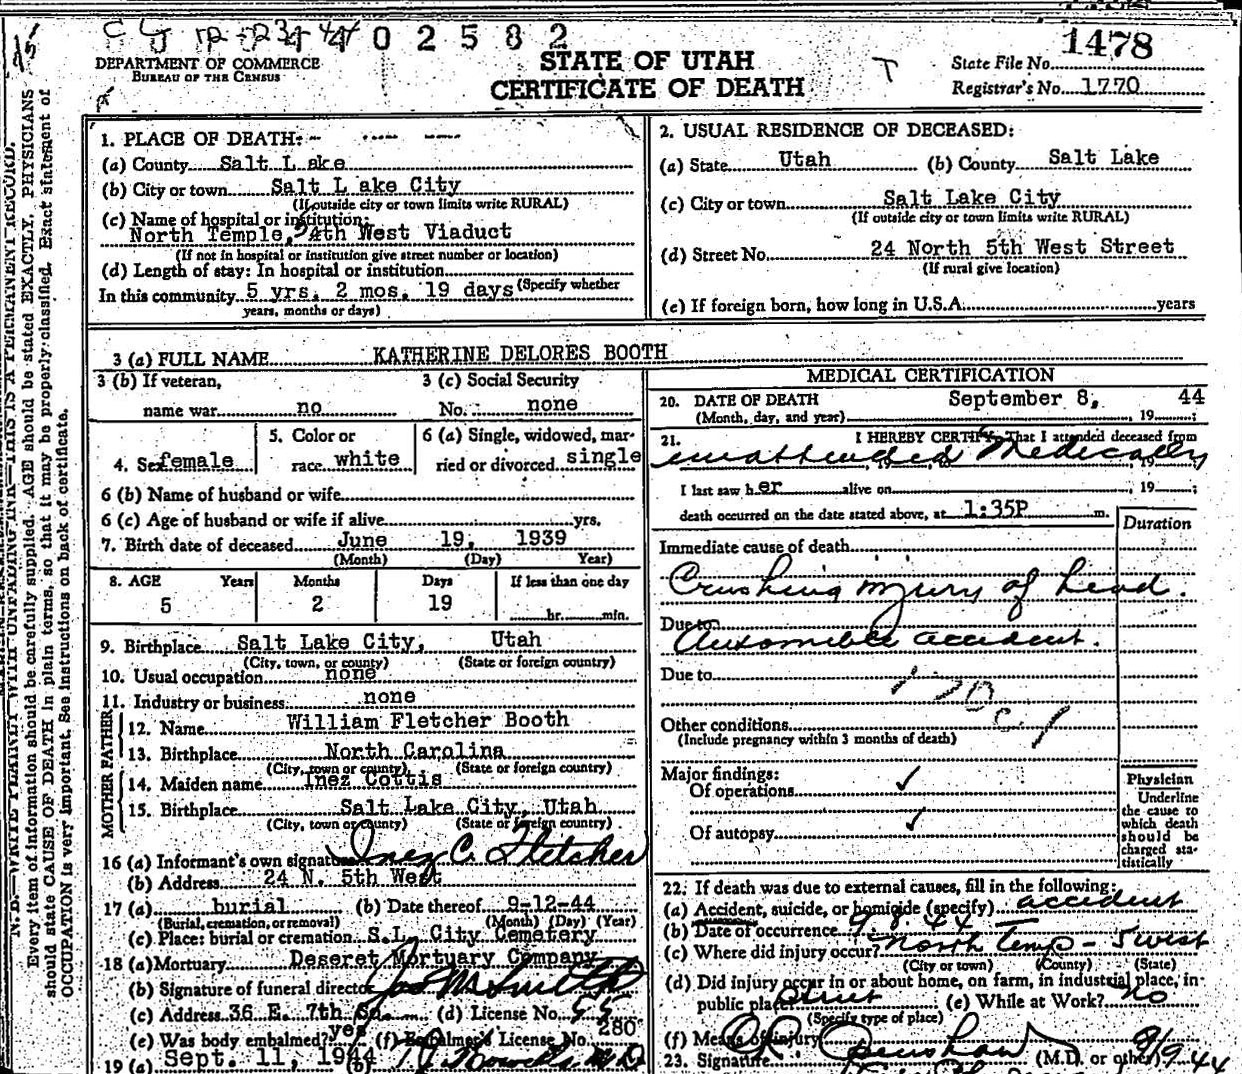 12-23-44 0 2 5 8 2
1478
DEPARTMENT OF COMMERCE
BUREAU OF THE CENSUS
STATE OF UTAH
CERTIFICATE OF DEATH
T
State File No.
Registrar's No. 1770
N. B.—WRITE PLAINLY WITH UNFADING INK—THIS IS A PERMANENT RECORD.
Every item of information should be carefully supplied. AGE should be stated EXACTLY. PHYSICIANS
should state CAUSE OF DEATH in plain terms, so that it may be properly classified. Exact statement of
OCCUPATION is very important. See instructions on back of certificate.
1. PLACE OF DEATH:
(a) County Salt L ake
(b) City or town Salt L ake City
(If outside city or town limits write RURAL)
(c) Name of hospital or institution:
North Temple, 4th West Viaduct
(If not in hospital or institution give street number or location)
(d) Length of stay: In hospital or institution
In this community 5 yrs. 2 mos. 19 days (Specify whether
years, months or days)
2. USUAL RESIDENCE OF DECEASED:
(a) State Utah (b) County Salt Lake
(c) City or town Salt Lake City
(If outside city or town limits write RURAL)
(d) Street No. 24 North 5th West Street
(If rural give location)
(e) If foreign born, how long in U.S.A. years
3 (a) FULL NAME KATHERINE DELORES BOOTH
3 (b) If veteran, 3 (c) Social Security
name war no No. none
4. Sex female 5. Color or race white 6 (a) Single, widowed, mar-
ried or divorced single
6 (b) Name of husband or wife
6 (c) Age of husband or wife if alive yrs.
7. Birth date of deceased June 19, 1939
(Month) (Day) Year)
8. AGE Years Months Days If less than one day
5 2 19 hr. min.
9. Birthplace Salt Lake City, Utah
(City, town, or county) (State or foreign country)
10. Usual occupation none
11. Industry or business none
FATHER
12. Name William Fletcher Booth
13. Birthplace North Carolina
(City, town or county) (State or foreign country)
MOTHER
14. Maiden name Inez Cottis
15. Birthplace Salt Lake City, Utah
(City, town or county) (State or foreign country)
16 (a) Informant's own signature Inez C. Fletcher
(b) Address 24 N. 5th West
17 (a) burial (b) Date thereof 9-12-44
(Burial, cremation, or removal) (Month) (Day) (Year)
(c) Place: burial or cremation S.L. City Cemetery
18 (a) Mortuary Deseret Mortuary Company
(b) Signature of funeral director Jos M Smith
(c) Address 36 E. 7th So. (d) License No. 55
(e) Was body embalmed? yes (f) Embalmer's License No. 280
19 (a) Sept. 11, 1944 (b) M.D.
MEDICAL CERTIFICATION
20. DATE OF DEATH September 8, 44
(Month, day, and year) , 19 ;
21. I HEREBY CERTIFY, That I attended deceased from
unattended Medically
I last saw her alive on , 19 ;
death occurred on the date stated above, at 1:35P m.
Duration
Immediate cause of death
Crushing injury of head.
Due to
Automobile accident.
Due to
170 c 1
Other conditions
(Include pregnancy within 3 months of death)
Major findings:
Of operations ✓
Of autopsy ✓
Physician
Underline
the cause to
which death
should be
charged sta-
tistically
22. If death was due to external causes, fill in the following:
(a) Accident, suicide, or homicide (specify) accident
(b) Date of occurrence 9. 8. 44
(c) Where did injury occur? North Temp - 5 west
(City or town) (County) (State)
(d) Did injury occur in or about home, on farm, in industrial place, in
public place? Street (e) While at Work? no
(Specify type of place)
(f) Means of injury
23. Signature (M.D. or other) 9/9 44